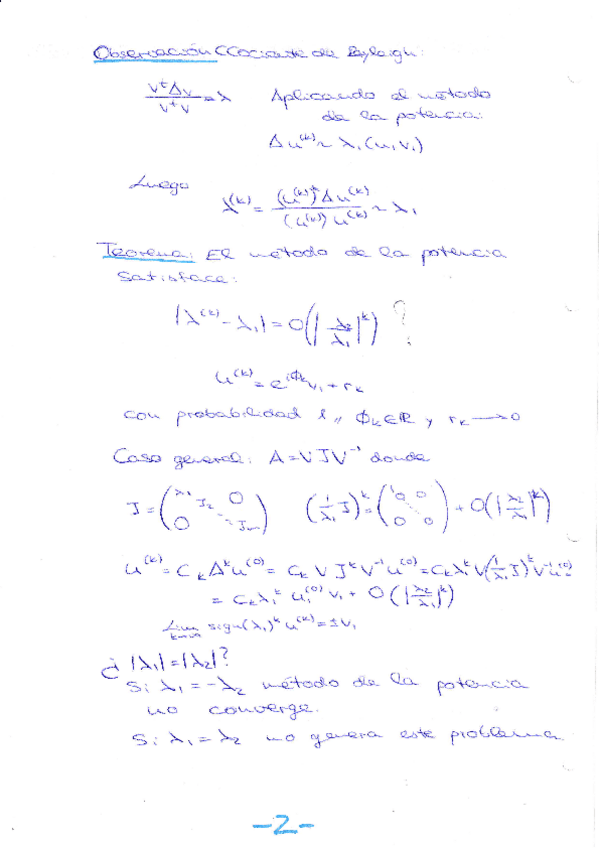 Observación (Cociente de Rayleigh:
v^t A v / v^t v = λ Aplicando el método
de la potencia:
A u^(k) ~ λ₁(u₁v₁)
Luego
λ^(k) = (u^(k))^* A u^(k) / (u^(k))^* u^(k) ~ λ₁
Teorema: El método de la potencia
satisface:
|λ^(k) - λ₁| = O(|λ₂/λ₁|^k) ?
u^(k) = e^{iΦ_k} v₁ + r_k
con probabilidad 1,, Φ_k ∈ ℝ y r_k → 0
Caso general: A = VJV⁻¹ donde
J = (λ₁ J₂ 0 0 ⋱ J_m) (1/λ₁ J)^k = (1 0 0 0 ⋱ 0) + O(|λ₂/λ₁|^k)
u^(k) = C_k A^k u^(0) = C_k V J^k V⁻¹ u^(0) = C_k λ₁^k V(1/λ₁ J)^k V⁻¹ u^(0) =
= C_k λ₁^k u₁^(0) v₁ + O(|λ₂/λ₁|^k)
Lim k→∞ sign(λ₁)^k u^(k) = ±v₁
¿ |λ₁| = |λ₂| ?
Si λ₁ = -λ₂ método de la potencia
no converge.
Si λ₁ = λ₂ no genera este problema
-2-